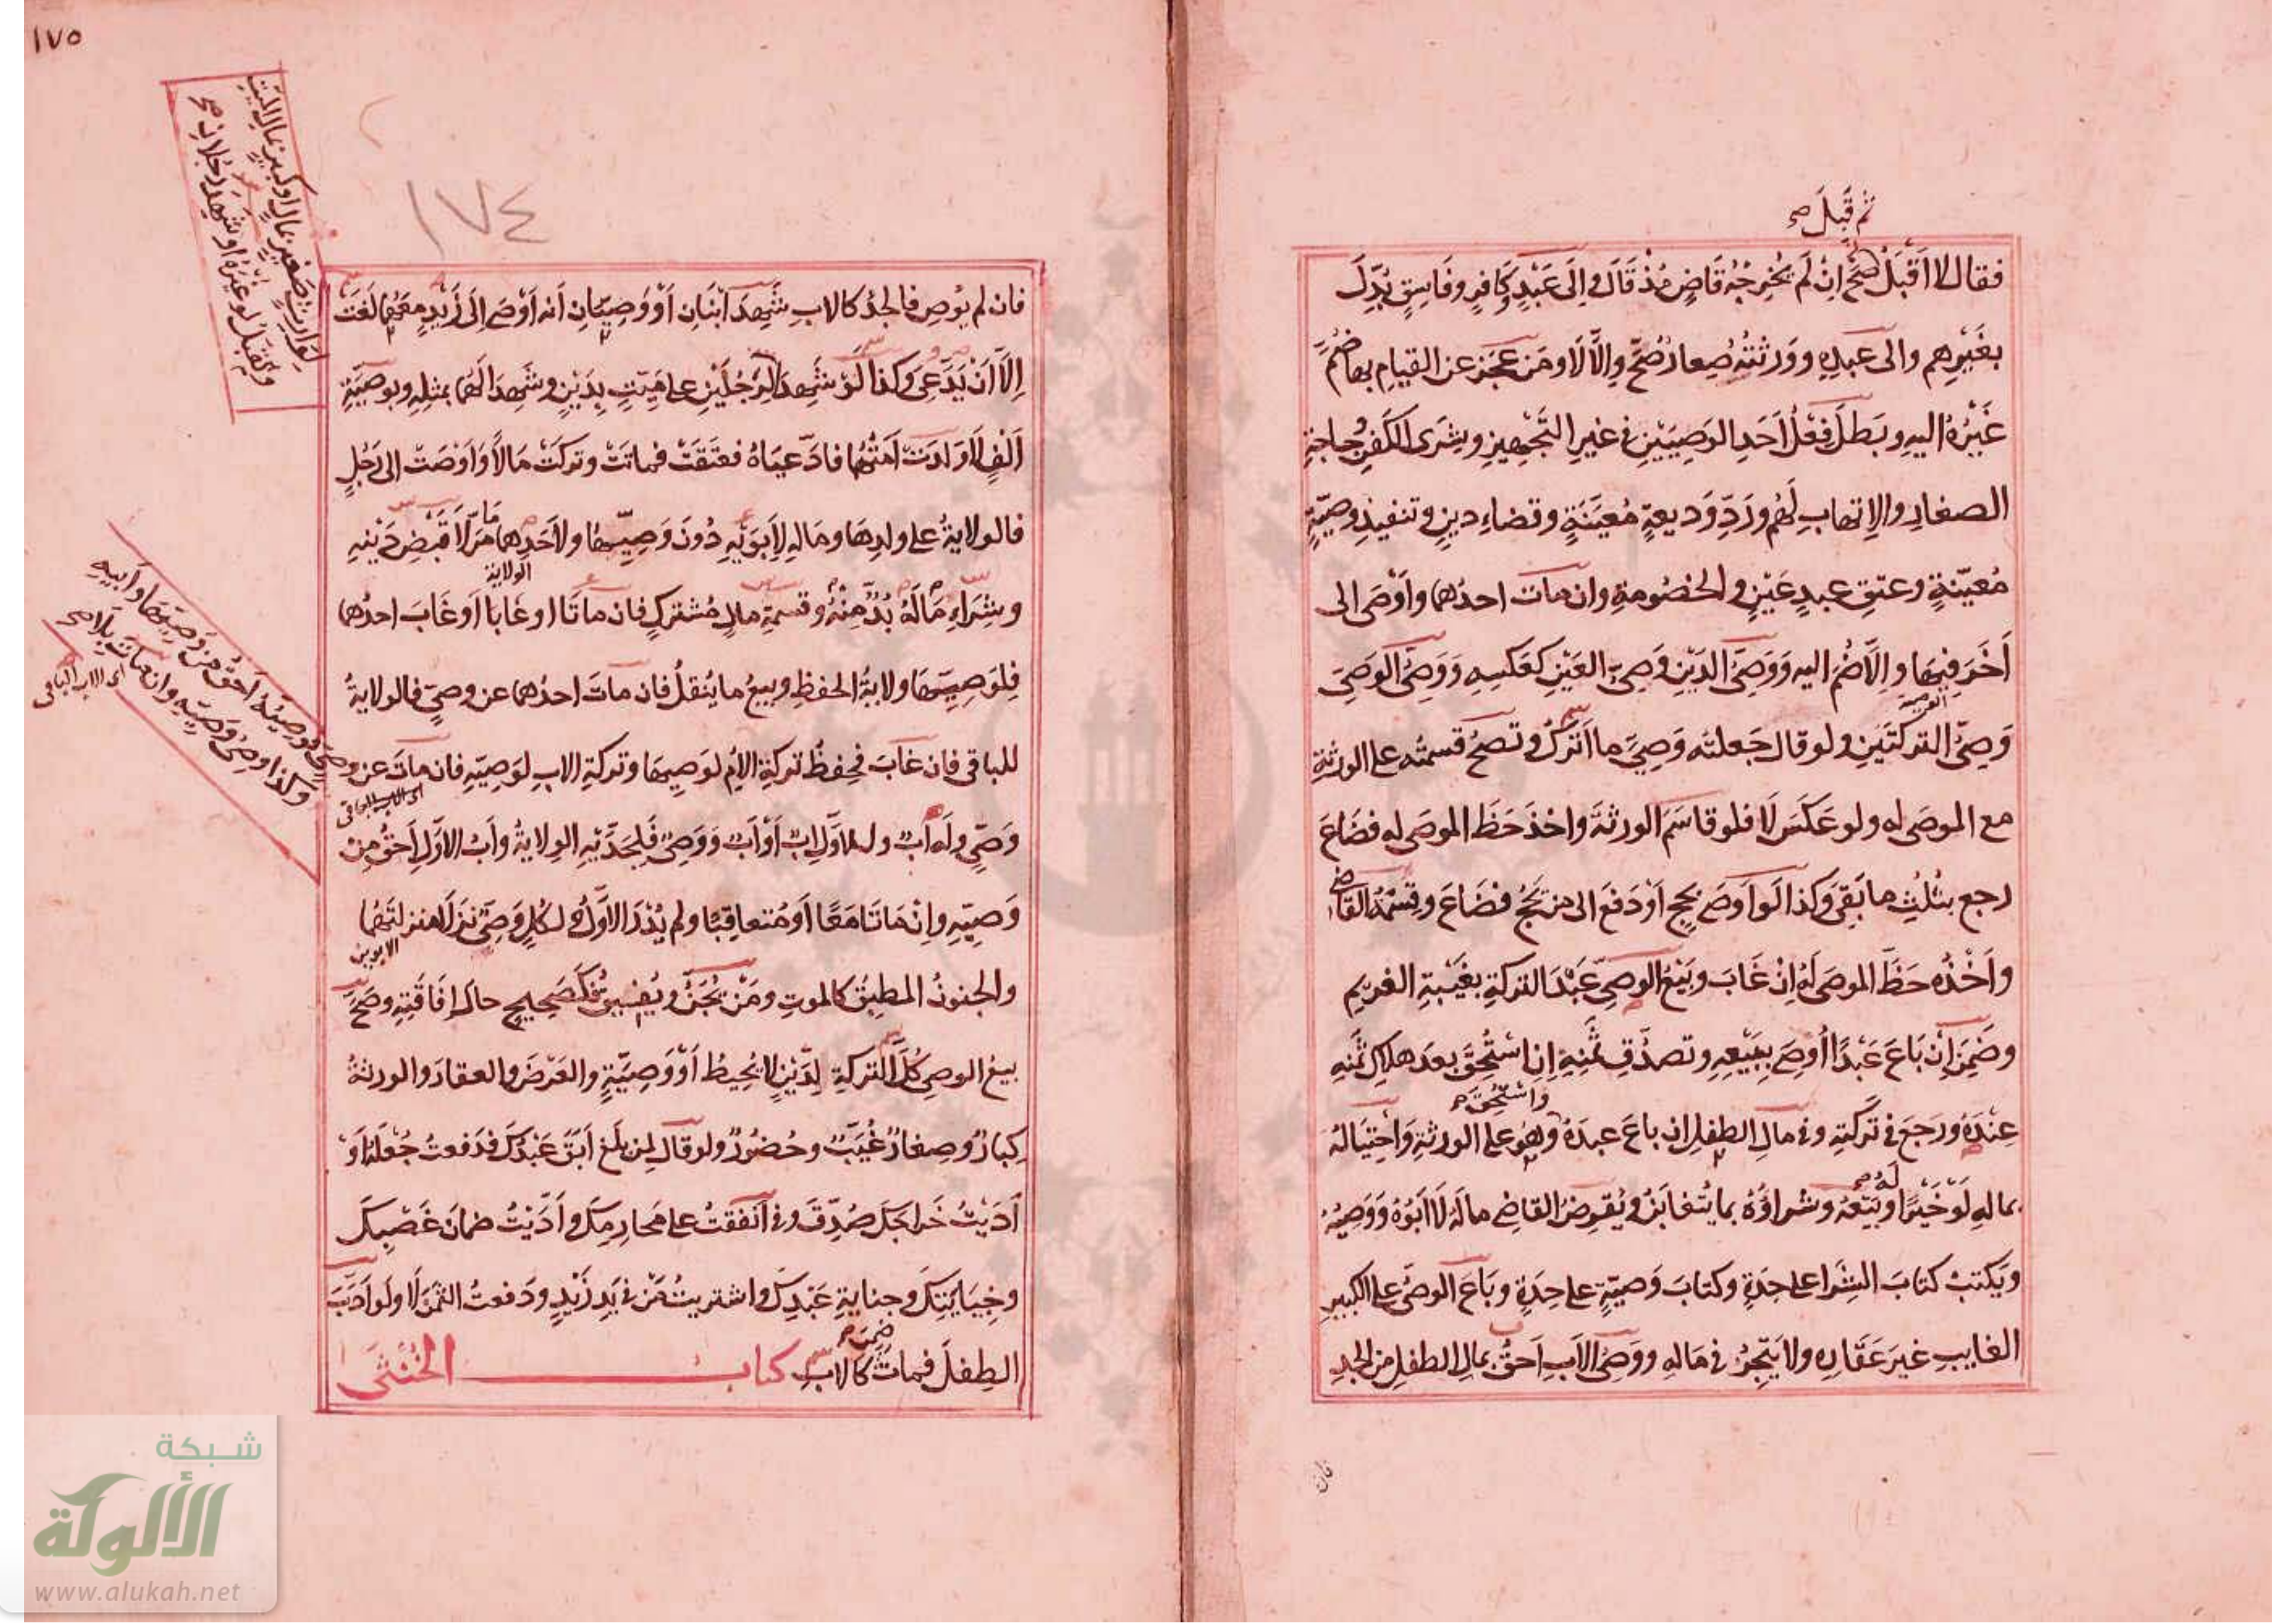 ثم قبل صح
فقال لا اقبل صح ان لم يخرجه قاض مذ قال لا والى عبد وكافر وفاسق بدل
بغيرهم والى عبده وورثته صغار صح والا لا ومن عجز عن القيام بها ضم
غيره اليه وبطل فعل احد الوصيين في غير التجهيز وشرى الكفن وحاجة
الصغار والاتهاب لهم ورد وديعة معينة وقضاء دين وتنفيذ وصية
معينة وعتق عبد عين والخصومة وان مات احدهما واوصى الى
آخر فبها والا ضم اليه ووصي الدين وصي العين كعكسه ووصي الوصي
وصي التركتين ولو قال جعلته وصي ما اترك وتصح قسمته على الورثة
مع الموصى له ولو عكس لا فلو قاسم الورثة واخذ حظ الموصى له فضاع
رجع بثلث ما بقي وكذا لو اوصى بحج او دفع الى من يحج فضاع وقسمة القاضي
واخذه حظ الموصى له ان غاب وبيع الوصي عبد التركة بغيبة الغريم
وضمن ان باع عبدا اوصي ببيعه وتصدق ثمنه ان استحق بعد هلاك ثمنه
واستحق صح
عنده ورجع في تركته وفي مال الطفل ان باع عبده وهو على الورثة واحتياله
له صح
بماله لو خيرا وبيعه وشراؤه بما يتغابن ويقرض القاضي ماله لا ابوه ووصيه
ويكتب كتاب الشرا على حدة وكتاب وصية على حدة وباع الوصي على الكبير
الغايب غير عقاره ولا يتجر في ماله ووصي الاب احق بمال الطفل من الجد
فان
١٧٥
١٧٤
لوارث صغير بمال او كبير بمال الميت
ولم تقبل لو غيره او شهد رجلان صح
فان لم يوص فالجد كالاب شهد ابنان او وصيان انه اوصى الى زيد معهما لغت
الا ان يدعي وكذا لو شهدا لرجلين على ميت بدين وشهدا لهما بمثله وبوصية
الف لا ولدت امتهما فادعياه فعتقت فماتت وتركت مالا واوصت الى رجل
فالولاية على ولدها وماله لابويه دون وصيها ولاحدهما ما مر لا قبض دينه
الولاية
وشراء ما له بد منه وقسمة مال مشترك فان ماتا او غابا او غاب احدهما
فلوصيها ولاية الحفظ وبيع ما ينقل فان مات احدهما عن وصي فالولاية
للباقي فان غاب فحفظ تركة الام لوصيها وتركة الاب لوصيه فان مات عن وصي
فوصيه احق من وصيها وابيه
وكذا وصي وصيه وان مات بلا صح
اى الاب الباقى
وصي وله اب وللاول اب او اب ووصي فلجديه الولاية واب الاول احق من
وصيه وان ماتا معا او متعاقبا ولم يدر الاول فكل وصي نزلا منزلتهما
الابوين
والجنون المطبق كالموت ومن يجن ويفيق فكصحيح حال افاقته وصح
بيع الوصي كل التركة لدين لا يحيط او وصية والعرض والعقار والورثة
كبار وصغار غيب وحضور ولو قال لمن بلغ ابق عبدك فدفعت جعله او
اديت خراجك صدق وفي انفقت على محارمك واديت ضمان غصبك
وجنايتك وجناية عبدك واشتريت من في يد زيد ودفعت الثمن لا ولو ادب
ضمن صح
الطفل فمات كالاب كتاب الخنثى
شبكة
الألوكة
www.alukah.net